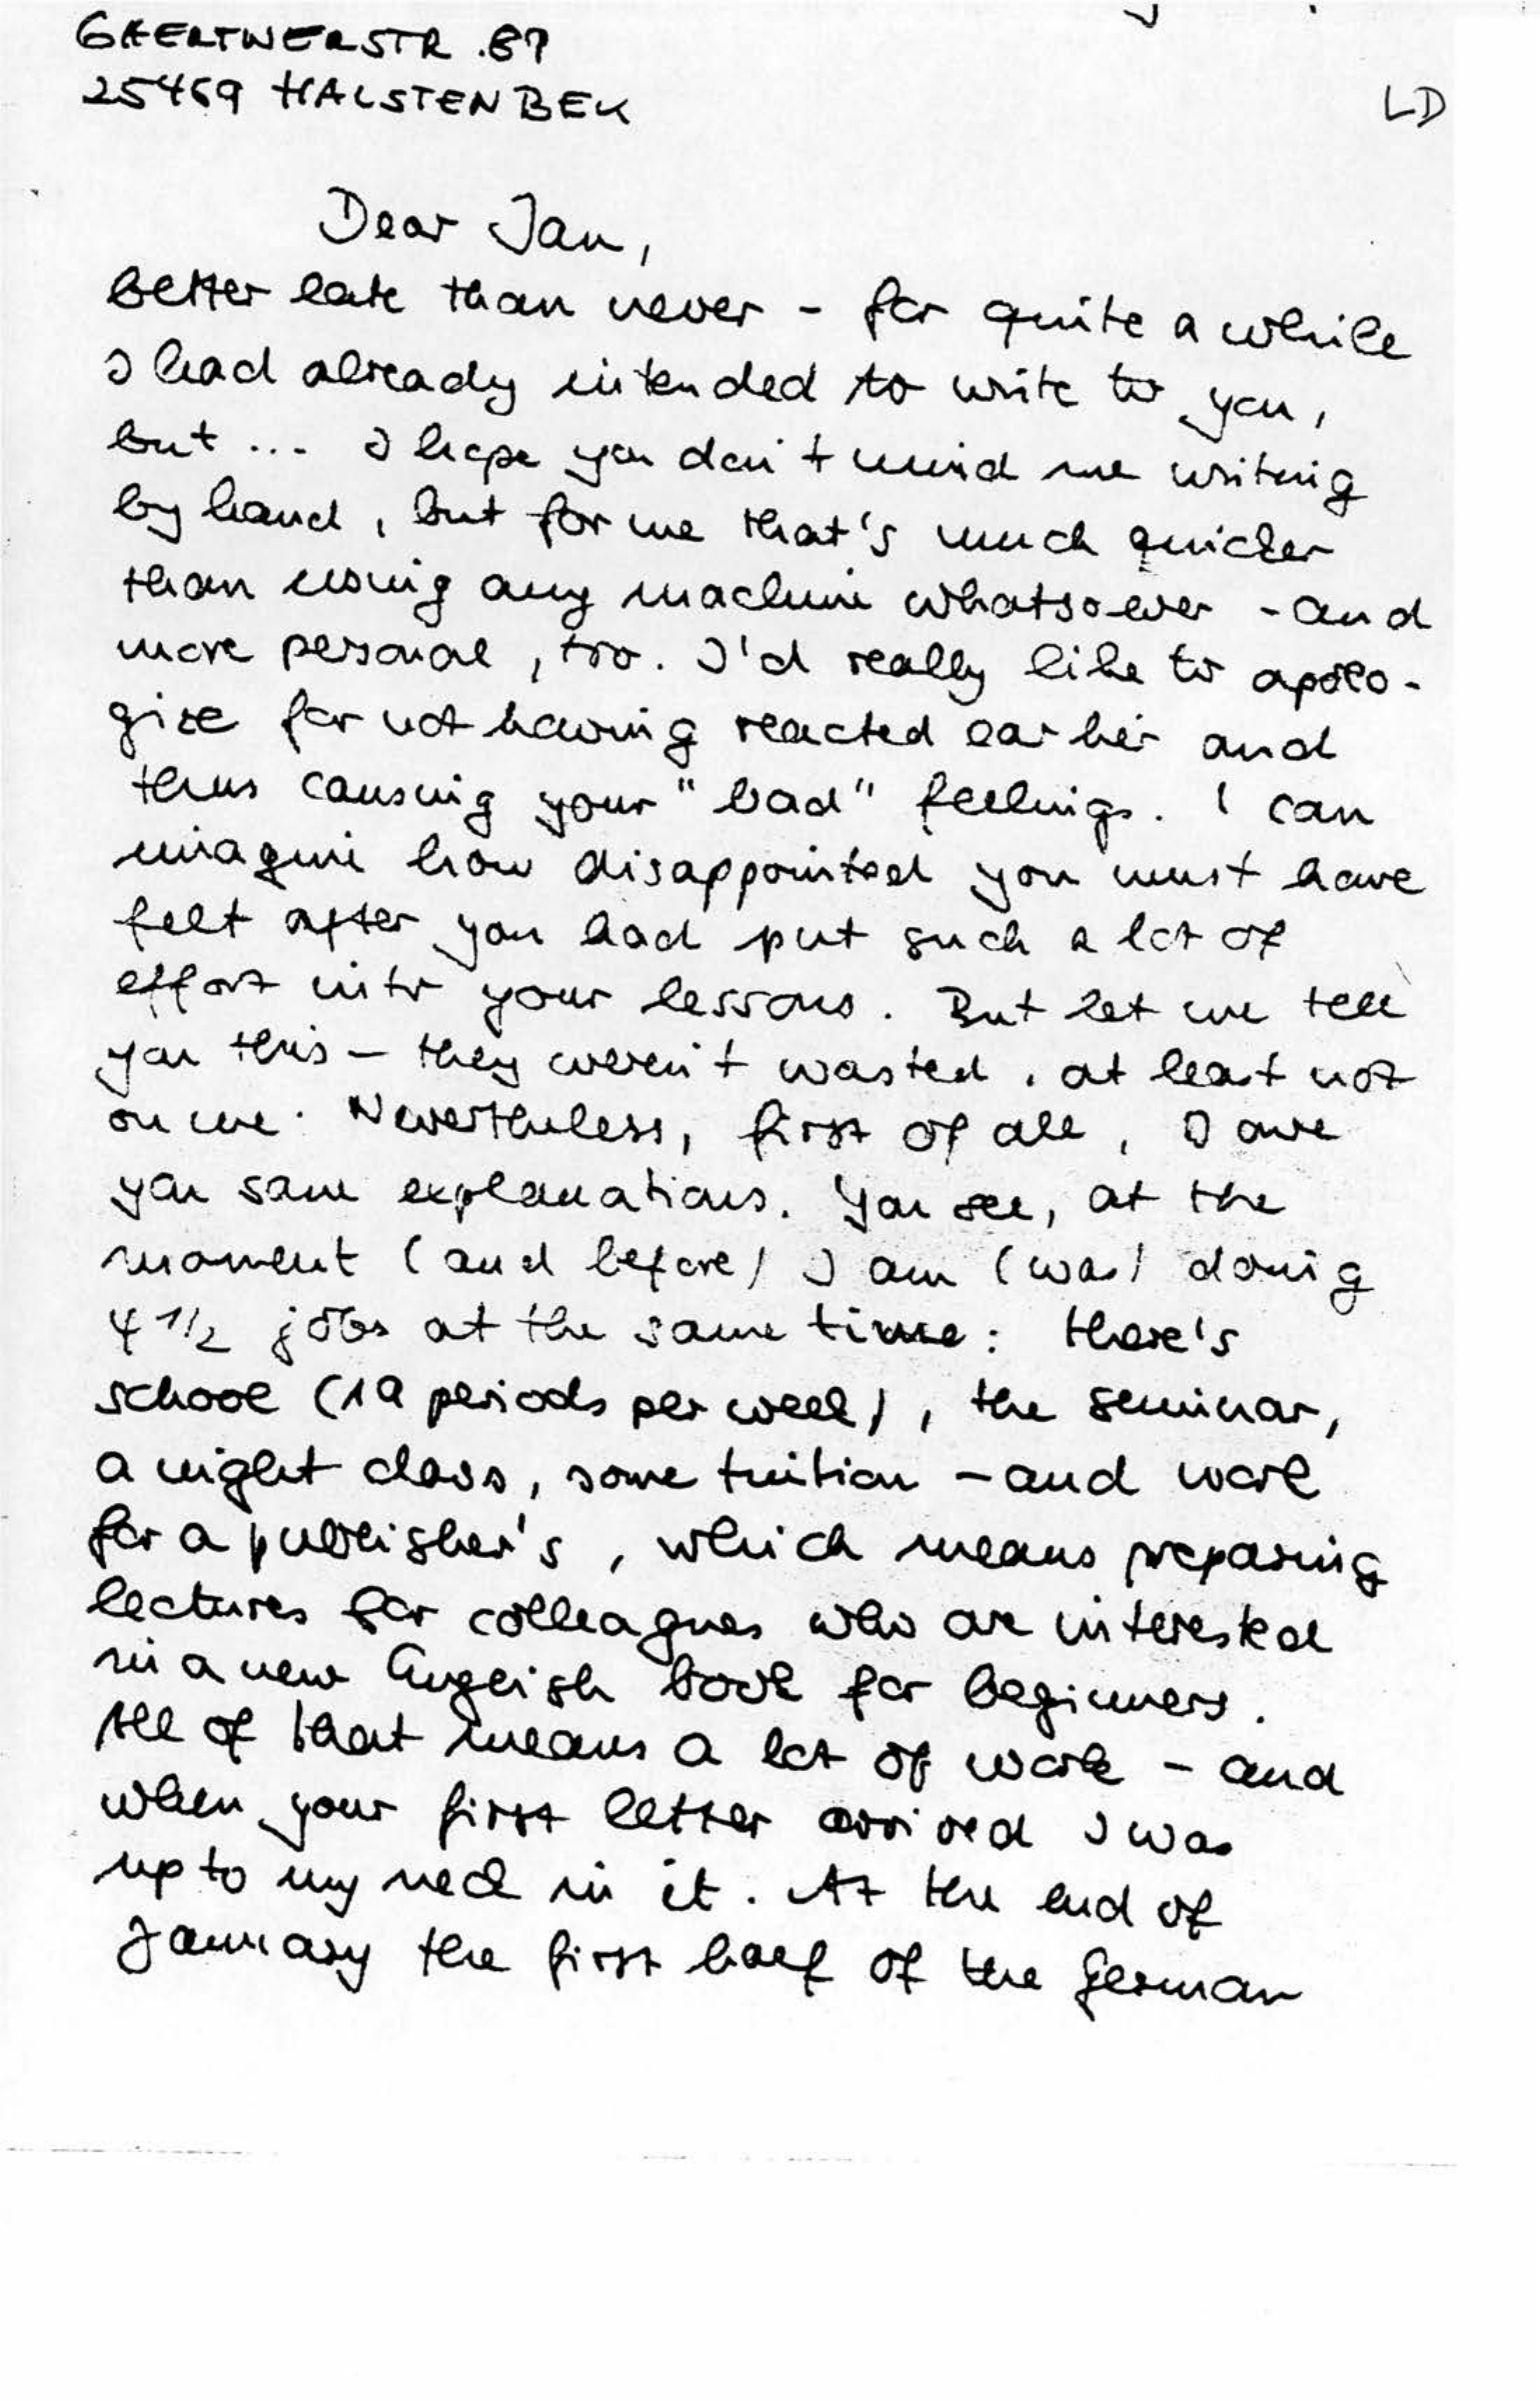 GAERTNERSTR. 87
25469 HALSTENBEK
LD
Dear Jan,
better late than never - for quite a while
I had already intended to write to you,
but ... I hope you don't mind me writing
by hand, but for me that's much quicker
than using any machine whatsoever - and
more personal, too. I'd really like to apolo-
gize for not having reacted earlier and
thus causing your "bad" feelings. I can
imagine how disappointed you must have
felt after you had put such a lot of
effort into your lessons. But let me tell
you this - they weren't wasted, at least not
on me. Nevertheless, first of all, I owe
you some explanations. You see, at the
moment (and before) I am (was) doing
4 1/2 jobs at the same time: there's
school (19 periods per week), the seminar,
a night class, some tuition - and work
for a publisher's, which means preparing
lectures for colleagues who are interested
in a new English book for beginners.
All of that means a lot of work - and
when your first letter arrived I was
up to my neck in it. At the end of
January the first half of the German